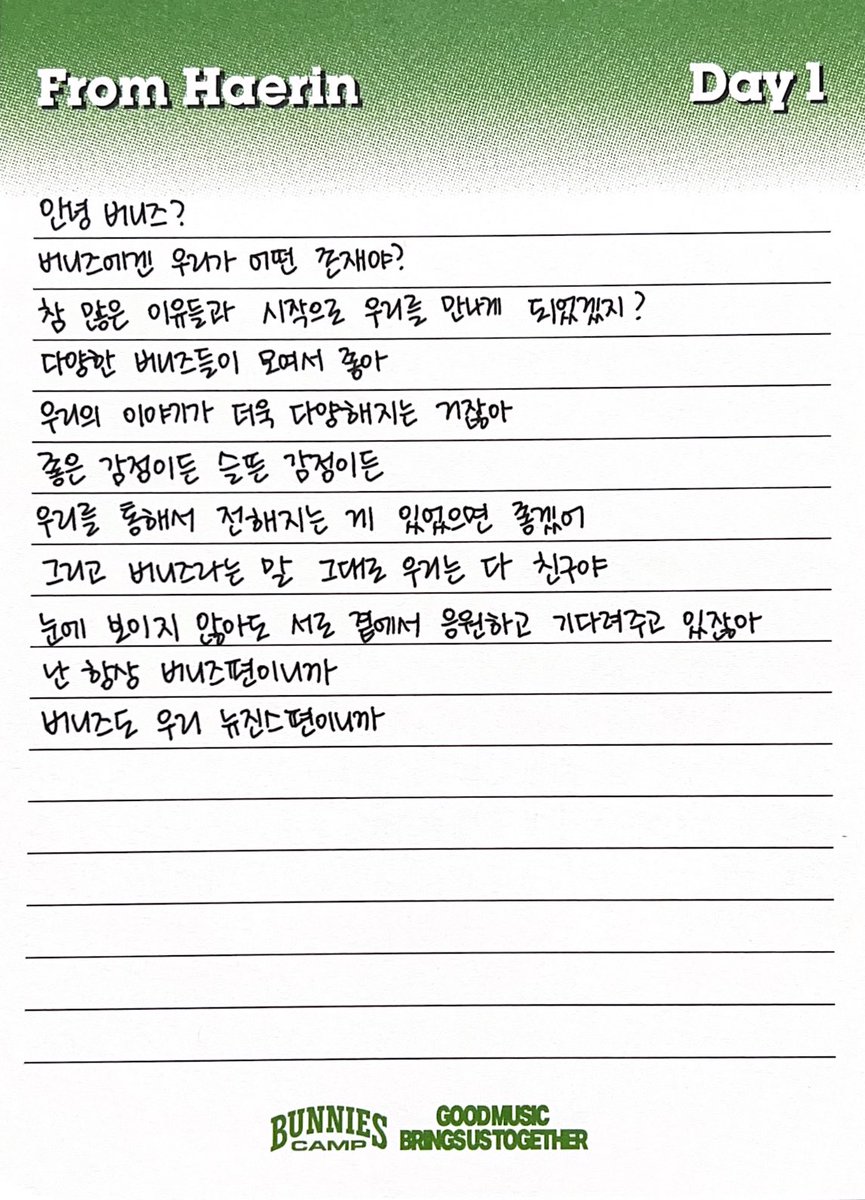 From Haerin Day 1
안녕 버니즈?
버니즈에겐 우리가 어떤 존재야?
참 많은 이유들과 시작으로 우리를 만나게 되었겠지?
다양한 버니즈들이 모여서 좋아
우리의 이야기가 더욱 다양해지는 거잖아
좋은 감정이든 슬픈 감정이든
우리를 통해서 전해지는 게 있었으면 좋겠어
그리고 버니즈라는 말 그대로 우리는 다 친구야
눈에 보이지 않아도 서로 곁에서 응원하고 기다려주고 있잖아
난 항상 버니즈편이니까
버니즈도 우리 뉴진스편이니까
BUNNIES CAMP GOOD MUSIC BRINGS US TOGETHER